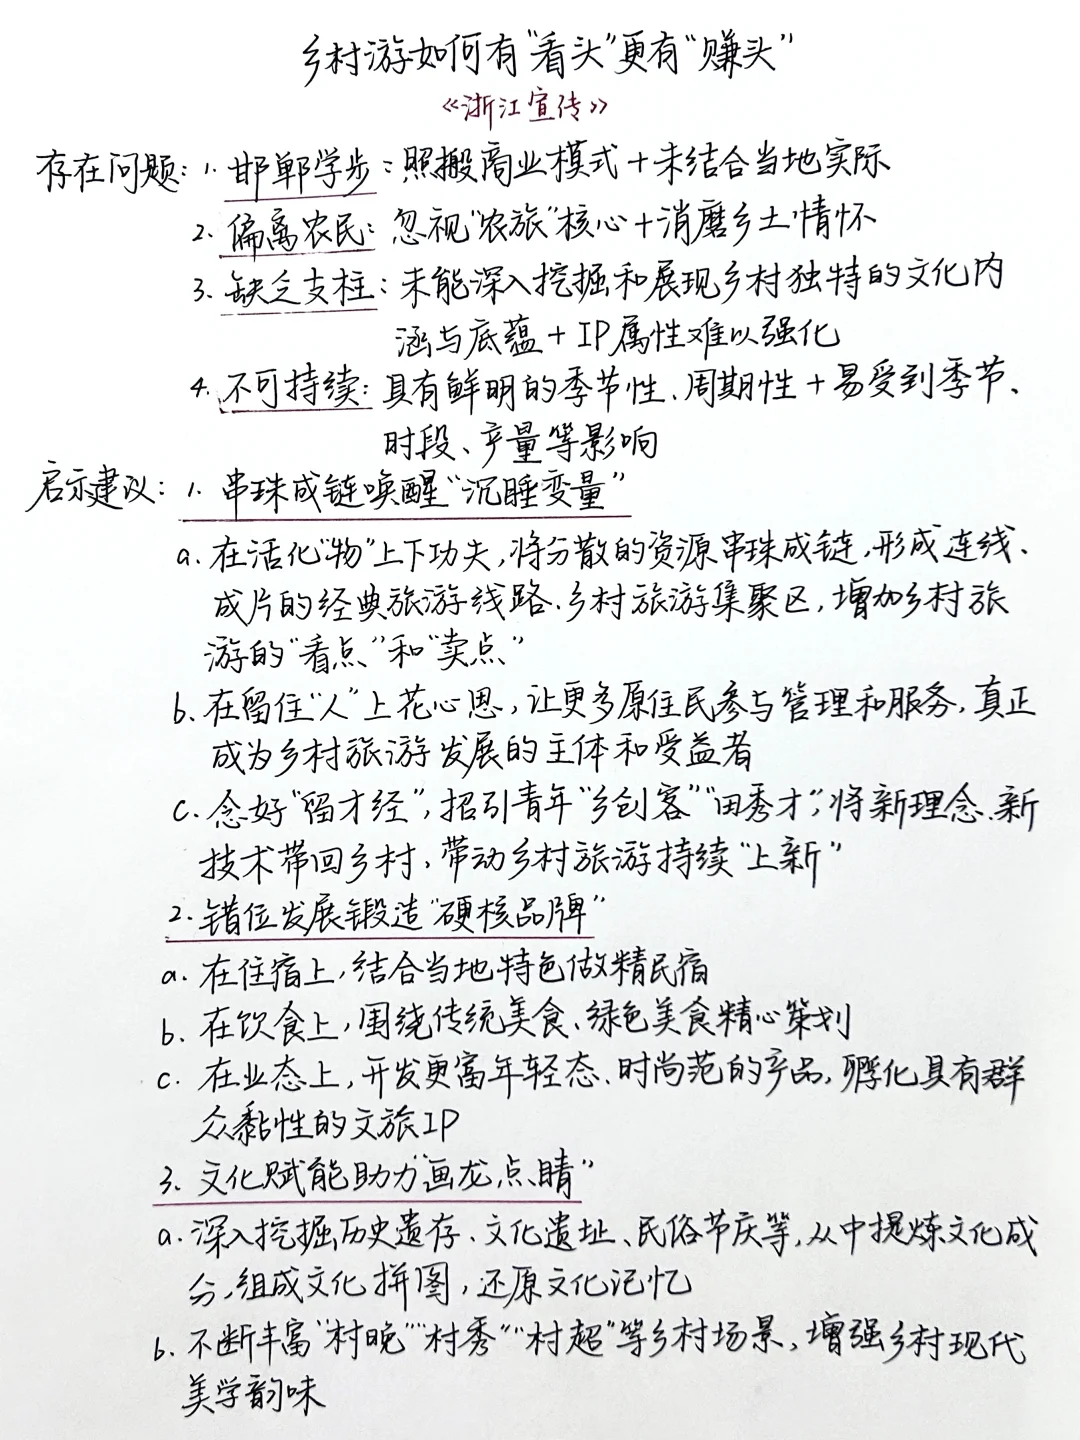 乡村游如何有"看头"更有"赚头"
《浙江宣传》
存在问题：1. 邯郸学步：照搬商业模式+未结合当地实际
2. 偏离农民：忽视"农旅"核心+消磨乡土情怀
3. 缺乏支柱：未能深入挖掘和展现乡村独特的文化内
涵与底蕴+IP属性难以强化
4. 不可持续：具有鲜明的季节性、周期性+易受到季节、
时段、产量等影响
启示建议：1. 串珠成链唤醒"沉睡变量"
a. 在活化"物"上下功夫，将分散的资源串珠成链，形成连线、
成片的经典旅游线路、乡村旅游集聚区，增加乡村旅
游的"看点"和"卖点"
b. 在留住"人"上花心思，让更多原住民参与管理和服务，真正
成为乡村旅游发展的主体和受益者
c. 念好"留才经"，招引青年"乡创客""田秀才"，将新理念、新
技术带回乡村，带动乡村旅游持续"上新"
2. 错位发展锻造"硬核品牌"
a. 在住宿上，结合当地特色做精民宿
b. 在饮食上，围绕传统美食、绿色美食精心策划
c. 在业态上，开发更富年轻态、时尚范的产品，孵化具有群
众黏性的文旅IP
3. 文化赋能助力"画龙点睛"
a. 深入挖掘历史遗存、文化遗址、民俗节庆等，从中提炼文化成
分，组成文化拼图，还原文化记忆
b. 不断丰富"村晚""村秀""村超"等乡村场景，增强乡村现代
美学韵味